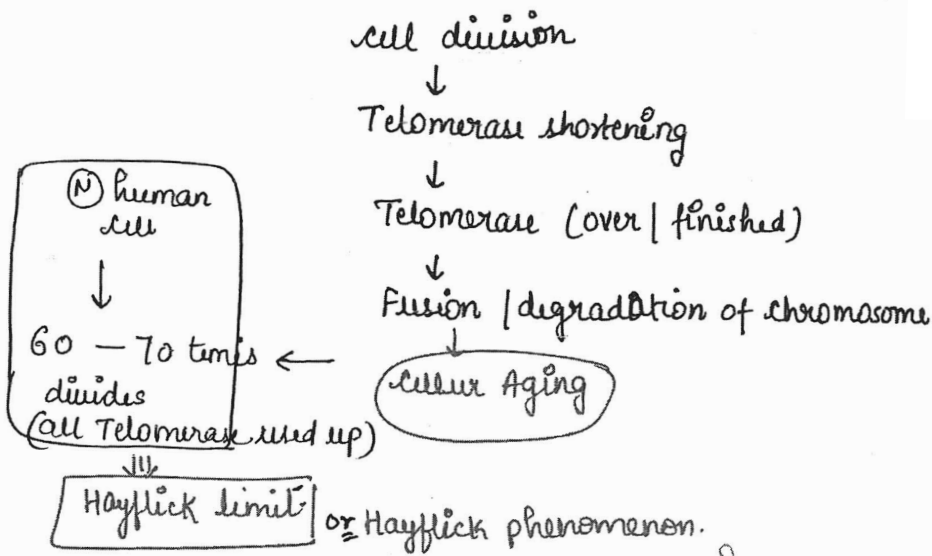 cell division
↓
Telomerase shortening
↓
Telomerase (over | finished)
↓
Fusion | degradation of chromosome
↓
Cellur Aging
←
Ⓝ human
cell
↓
60 – 70 times
divides
(all Telomerase used up)
Hayflick limit or Hayflick phenomenon.